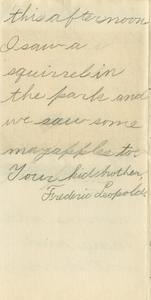 this afternoon
I saw a
squirrel in
the park and
we saw some
mayapples too
Your kid brother,
Frederic Leopold.